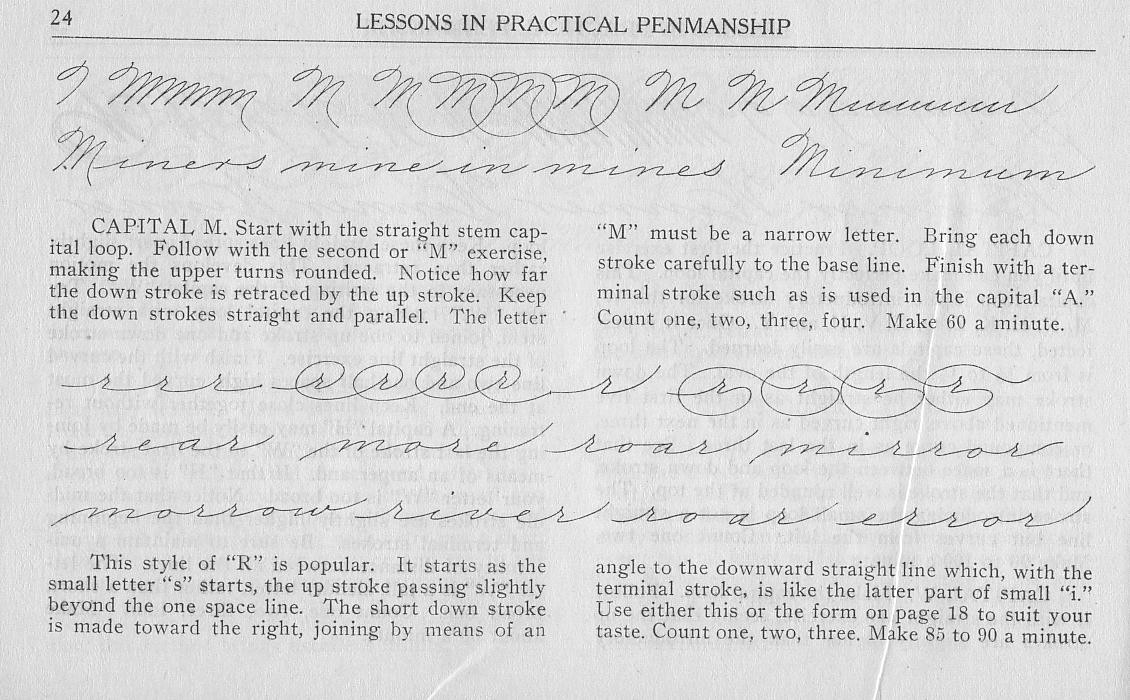 24
LESSONS IN PRACTICAL PENMANSHIP
I Mmmmm M M M M M M M Muuuuuu
Miners mine in mines Minimum
CAPITAL M. Start with the straight stem cap-
ital loop. Follow with the second or “M” exercise,
making the upper turns rounded. Notice how far
the down stroke is retraced by the up stroke. Keep
the down strokes straight and parallel. The letter
“M” must be a narrow letter. Bring each down
stroke carefully to the base line. Finish with a ter-
minal stroke such as is used in the capital “A.”
Count one, two, three, four. Make 60 a minute.
r r r r r r r r r r r r
rear more roar mirror
morrow river roar error
This style of “R” is popular. It starts as the
small letter “s” starts, the up stroke passing slightly
beyond the one space line. The short down stroke
is made toward the right, joining by means of an
angle to the downward straight line which, with the
terminal stroke, is like the latter part of small “i.”
Use either this or the form on page 18 to suit your
taste. Count one, two, three. Make 85 to 90 a minute.